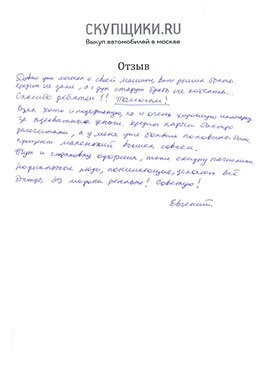 СКУПЩИКИ.RU
Выкуп автомобилей в москве
Отзыв
Давно уже мечтал о своей машине, вот решил брать.
кредит не дали, а с рук старую брать не хотелось...
Спасибо ребятам!! Помогли!
Взял хоть и подержанную, но в очень хорошую иномарку
за адекватные деньги. Кредит парни быстро
рассчитали, а у меня уже больше половины было,
процент маленький вышел совсем.
Тут и страховку оформил, тоже скидку насчитали.
нормальные люди, понимающие, делают всё
быстро, без мороки реально! Советую!
Евгений.